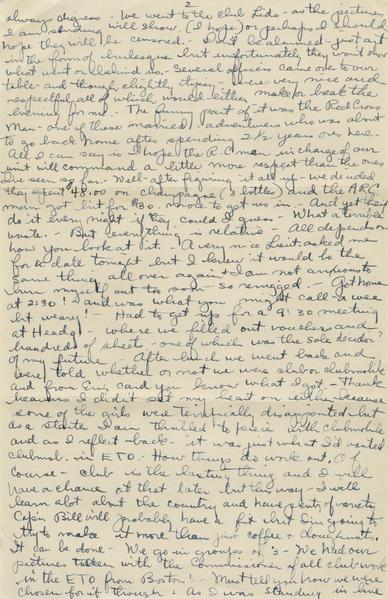 2
always digress - We went to the Club Lido - as the pictures
I am sending will show. (I hope) or perhaps I should
hope they will be censored. - Don't be alarmed - just art
in the form of burlesque but unfortunately they won't show
what went on behind us. - Several officers came over to our
table - and though slightly tipsy were very nice and
respectful, all of which would either make or break the
evening for me. - The funny part of it was the Red Cross
Men - one of these married adventurers who was about
to go back home after spending 2½ years over here.
All I can say is I hope the R.C. man in charge of our
unit will command a little more respect than the ones
I've seen so far. Well - after figuring it all up - we decided
they spent 48.00 on champagne (3 bottles) and the ARC
man got hit for $30. more to get us in. - And yet they
do it every night if they could I guess. - What a terrible
waste. - But everything is relative - All depends on
how you look at it. - A very nice Lieut. asked me
for a date tonight but I knew it would be the
same thing all over again. I am not anxious to
burn myself out too soon - so reneged. - Got home
at 2:30! and was what you might call - a wee
bit weary! - Had to get up for a 9:30 meeting
at Headq. - where we filled out vouchers and
hundreds of sheets - one of which was the sole decider
of my future! - After lunch we went back and
were told whether or not we were club or clubmobile
and from Eric card you know what I got. - Thank
heavens I didn't set my heart on either because
some of the girls were terrifically disappointed - but
as a slate I am thrilled to pieces with clubmobile
and as I reflect - back - it was just what I'd wanted
clubmob. in ETO. - How things do work out, Of
course - club is the lasting thing and I will
have a chance at that later but this way - I will
learn alot about the country and have plenty of variety
Cap'n Bill will probably have a fit but I'm going to
try to make it more than just coffee & doughnuts.
It can be done - We go in groups of 3 - We had our
pictures taken with the Commissioner of all club work
in the ETO from Boston! - Must tell you how we were
chosen for it though: As I was standing in line